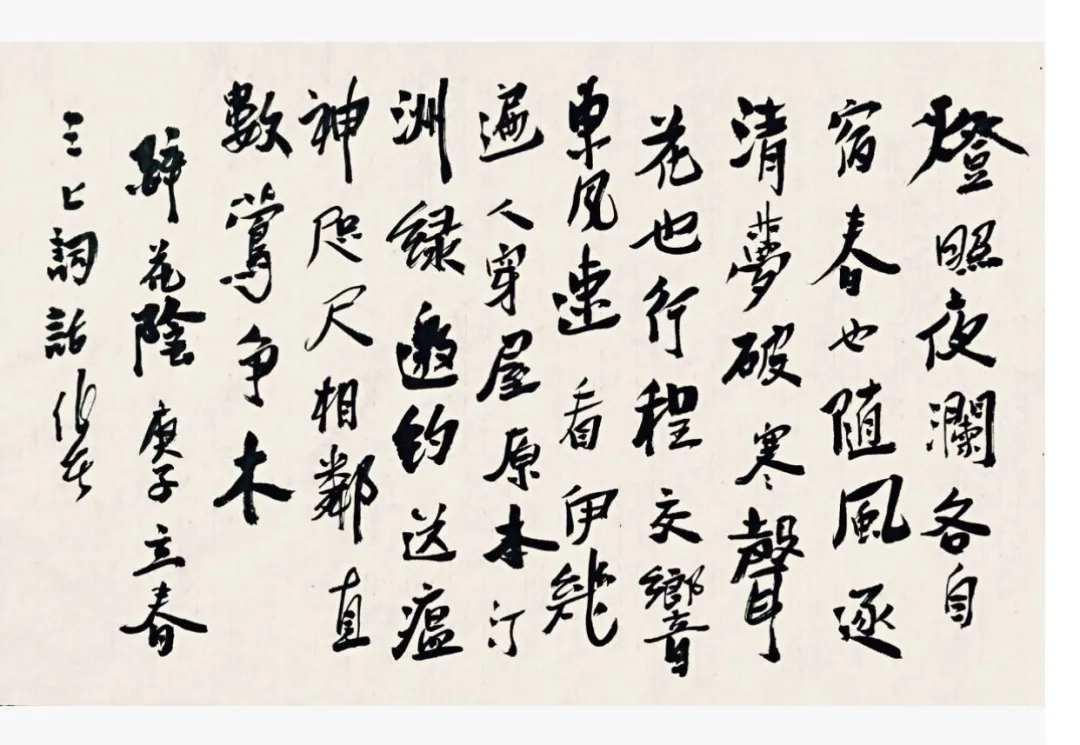 燈照夜瀾各自
宿春也隨風逐
清夢破寒聲
花也行程交響
東風速看伊幾
遍人穿屋原本汀
洲緑邀約送瘟
神咫尺相鄰直
數鶯争木
醉花陰 庚子立春
三 詞話